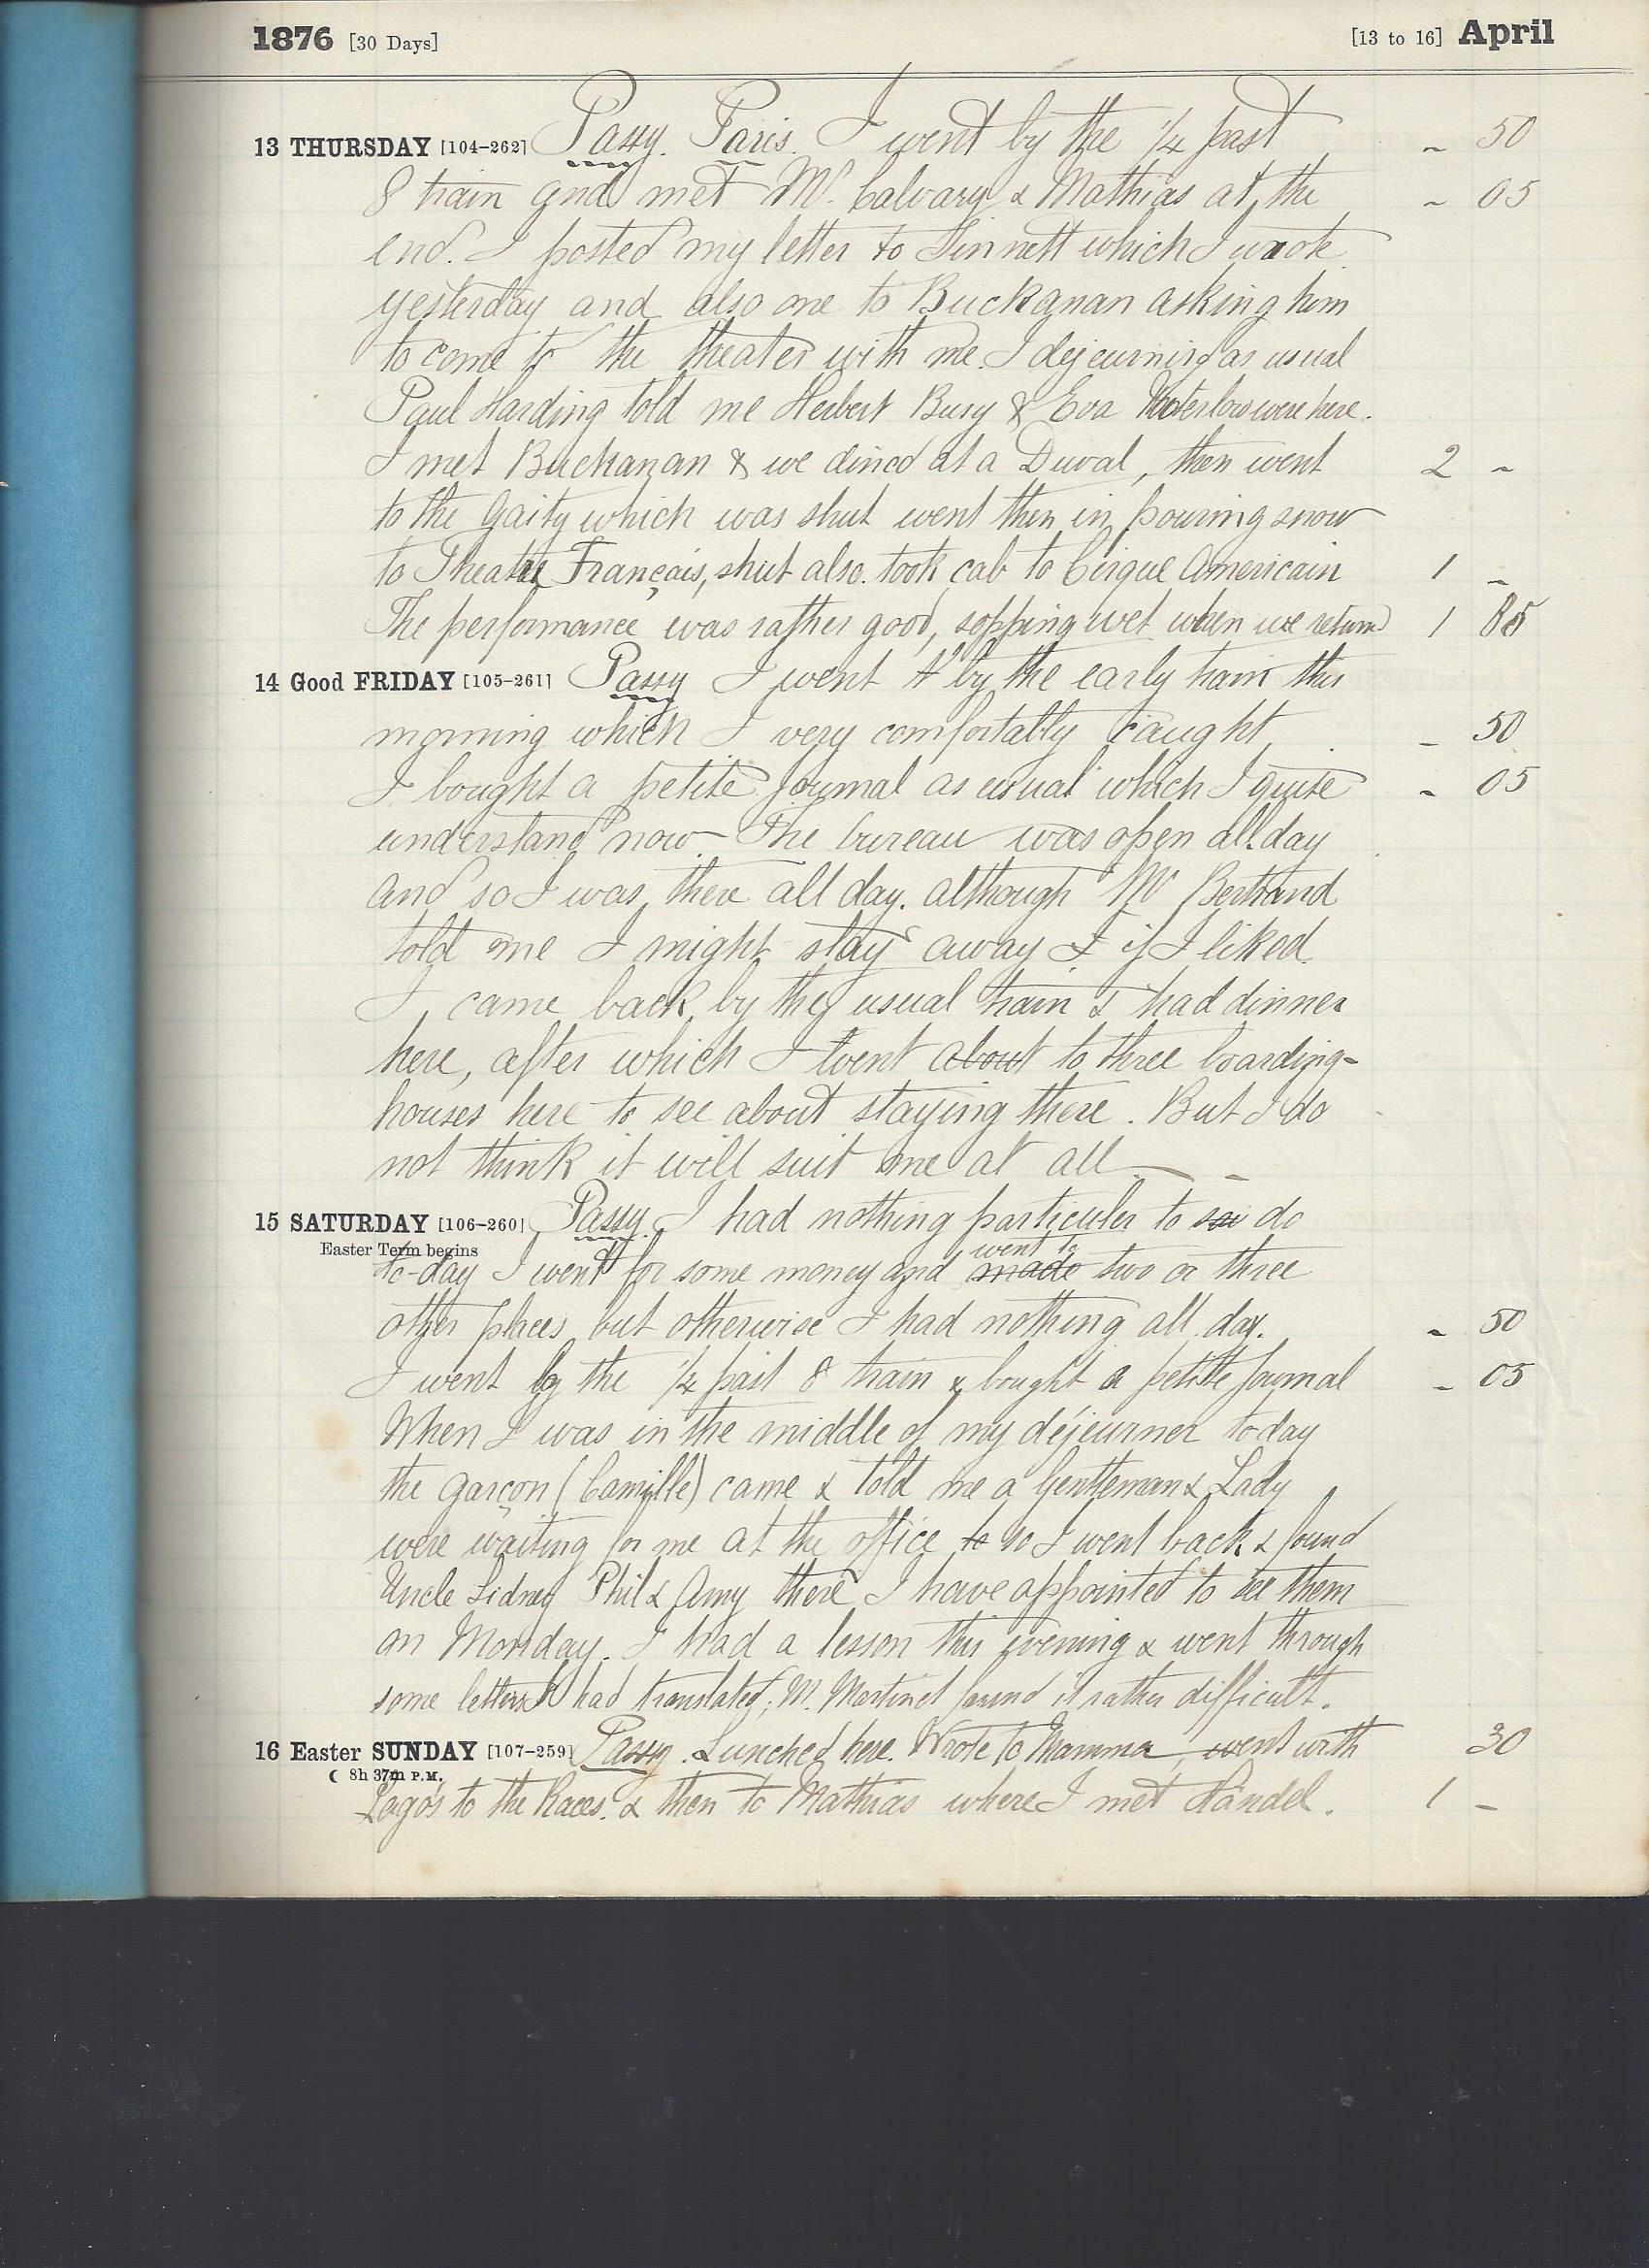 1876 [30 Days] [13 to 16] April
13 THURSDAY [104-262] Passy. Paris. I went by the ¼ past ~ 50
8 train and met Mr. Calvary & Mathias at the ~ 05
end. I posted my letter to Sinnett which I wrote
yesterday and also one to Buckanan asking him
to come to the theater with me. I dejeurnerd as usual
Paul Harding told me Herbert Bury & Eva Waterlow were here.
I met Buchanan & we dined at a Duval, then went 2 ~
to the Gaity which was shut went then in pouring snow
to Theatre Français, shut also. took cab to Cirque Americain 1 ~
The performance was rather good, sopping wet when we returnd 1 85
14 Good FRIDAY [105-261] Passy I went by the early train this
morning which I very comfortably caught ~ 50
I bought a petite Journal as usual which I quite ~ 05
understand now – The bureau was open all day
and so I was there all day. although Mr Bertrand
told me I might stay away I if I liked.
I came back by the usual train & had dinner
here, after which I went about to three boarding-
houses here to see about staying there. But I do
not think it will suit me at all –
15 SATURDAY [106-260] Passy. I had nothing particuler to do
Easter Term begins
went to
to-day I went for some money and made two or three
other places but otherwise I had nothing all day. ~ 50
I went by the ¼ past 8 train & bought a petitte Journal ~ 05
When I was in the middle of my déjeurner today
the garçon (Camille) came & told me a Gentleman & Lady
were waiting for me at the office to so I went back & found
Uncle Sidney Phil & Amy there I have appointed to see them
on Monday. I had a lesson this evening & went through
some letters I had translated; M. Martinet found it rather difficult.
16 Easter SUNDAY [107-259] Passy. Lunched here. Wrote to Mamma, went with 30
☾ 8h 37m P.M.
Lagos to the Races. & then to Mathias where I met Händel. 1 –